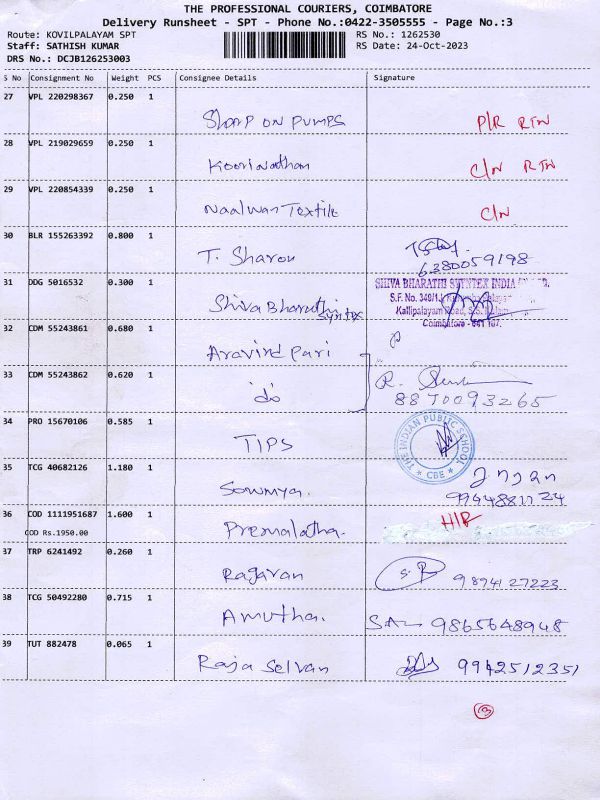 THE PROFESSIONAL COURIERS, COIMBATORE
Delivery Runsheet - SPT - Phone No.:0422-3505555 - Page No.:3
Route: KOVILPALAYAM SPT RS No.: 1262530
Staff: SATHISH KUMAR RS Date: 24-Oct-2023
DRS No.: DCJB126253003
S No Consignment No Weight PCS Consignee Details Signature
27 VPL 220298367 0.250 1
SHARP ON PUMPS P/R RTN
28 VPL 219029659 0.250 1
Koorinathan C/N RTN
29 VPL 220854339 0.250 1
Naalwar Textile C/N
30 BLR 155263392 0.800 1
T. Sharon 6380059198
31 DDG 5016532 0.300 1
Shiva Bharathi Syntex
SHIVA BHARATHI SYNTEX INDIA
S.F. No. 340/1,
Kallipalayam Road, S.S. Kulam
Coimbatore - 641 107.
32 CDM 55243861 0.680 1
Aravind Pari
33 CDM 55243862 0.620 1
do R.
8870093265
34 PRO 15670106 0.585 1
TIPS THE INDIAN PUBLIC SCHOOL
★ CBE ★
35 TCG 40682126 1.180 1
Sowmya. 9944881724
36 COD 1111951687 1.600 1
COD Rs.1950.00 Premalatha.
37 TRP 6241492 0.260 1
Ragavan S.R 9894127223
38 TCG 50492280 0.715 1
Amutha. 9865648948
39 TUT 882478 0.065 1
Raja Selvan 9942512351
13